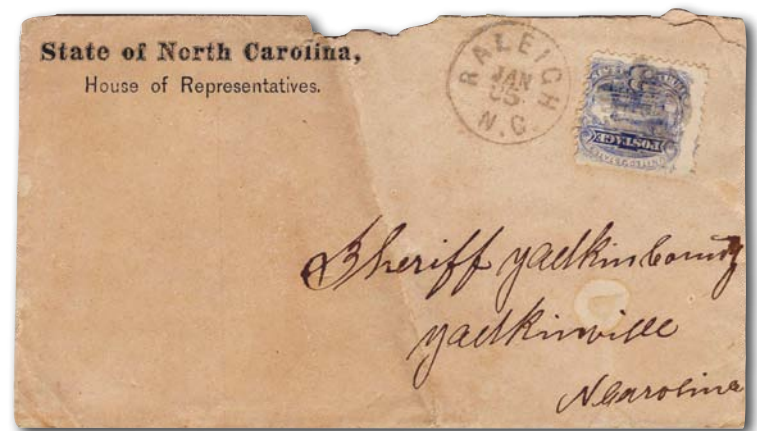 State of North Carolina,
House of Representatives.
RALEIGH
JAN
N.C.
POSTAGE
UNITED STATES
Sheriff Yadkin County
Yadkinville
N Carolina